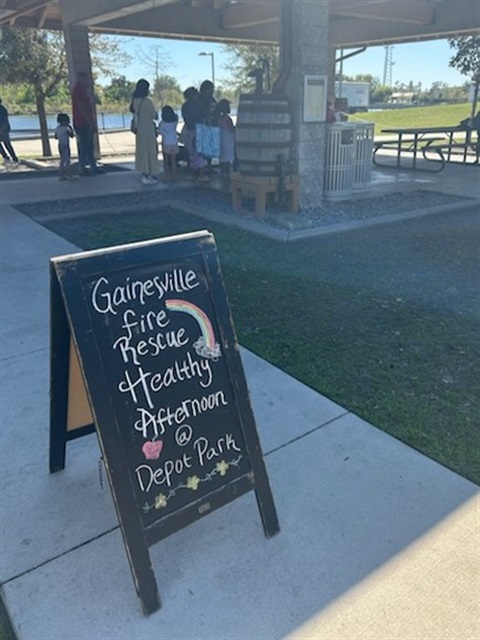 Gainesville
fire
Rescue
Healthy
Afternoon
@
Depot Park